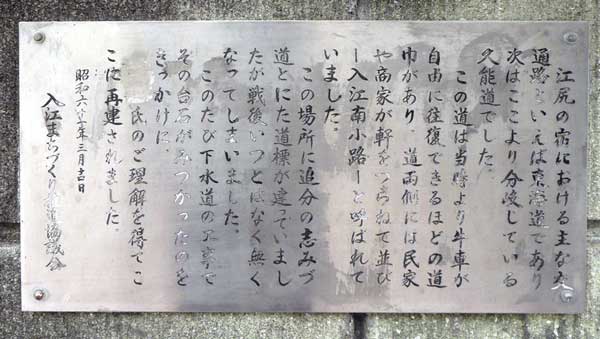 江尻の宿における主な交
通路といえば東海道であり
次はここより分岐している
久能道でした。
この道は当時より牛車が
自由に往復できるほどの道
巾があり、道両側には民家
や商家が軒をつらねて並び
ー入江南小路ーと呼ばれて
いました。
この場所に追分の志みづ
道とにた道標が建っていまし
たが戦後いつとはなく無く
なってしまいました。
このたび下水道の工事で
その台石がみつかったのを
きっかけに、
民のご理解を得てこ
こに再建されました。
昭和六十 年三月 日
入江まちづくり 進協議会